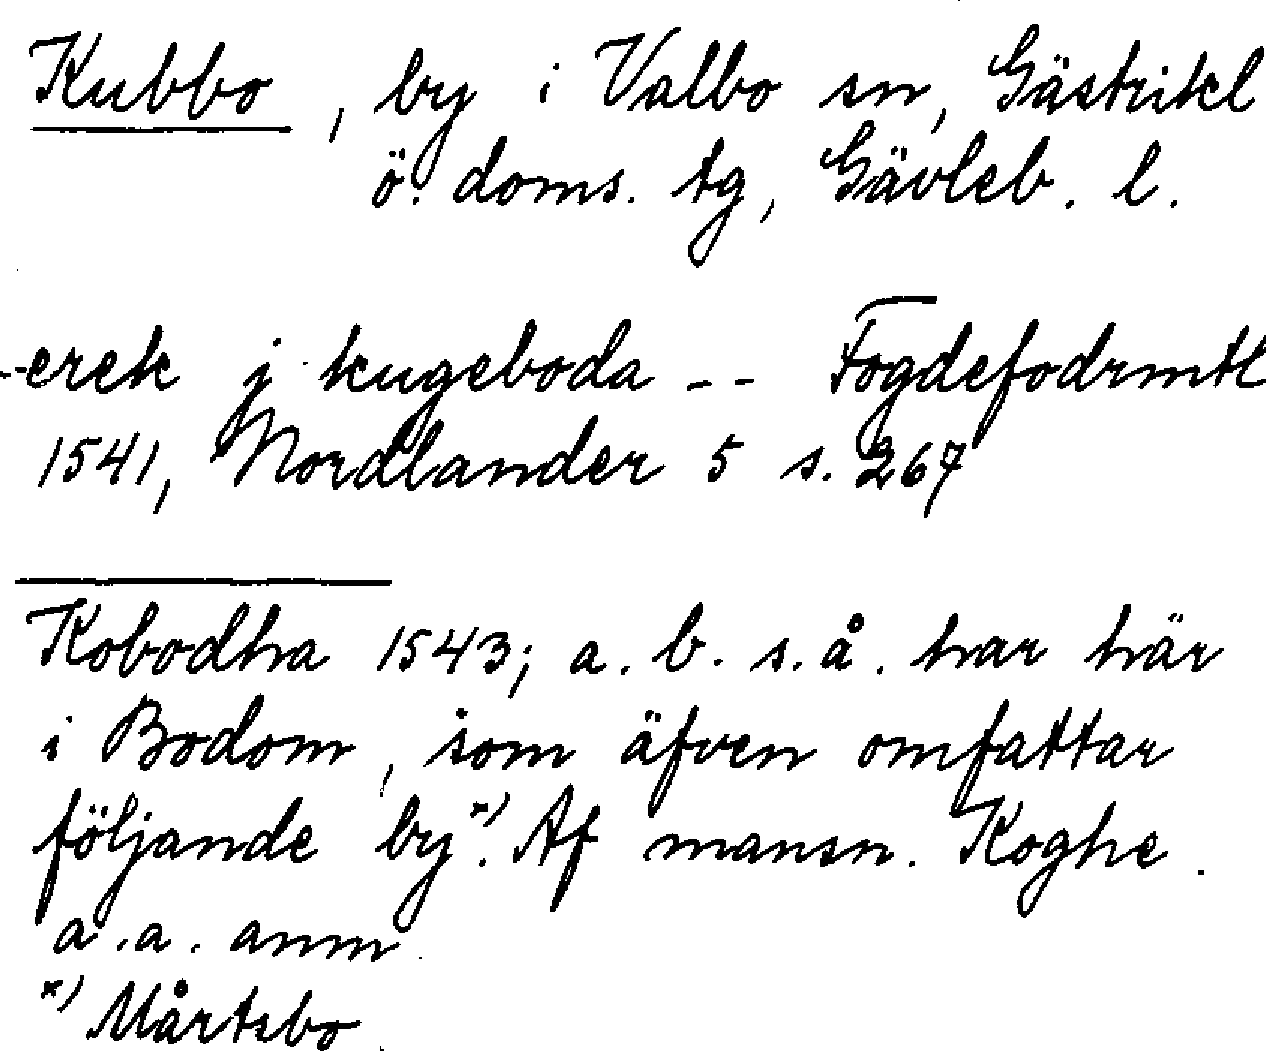 Kubbo, by i Valbo sn, Gästrikl
ö. doms. tg, Gävleb. l.
--erek j kugeboda -- Fogdefodrmtl
1541, Nordlander 5 s. 267
Kobodha 1543; a. b. s. å. har här
i Bodom, som äfven omfattar
följande by x). Af mansn. Koghe.
a. a. anm.
x) Mårtsbo.